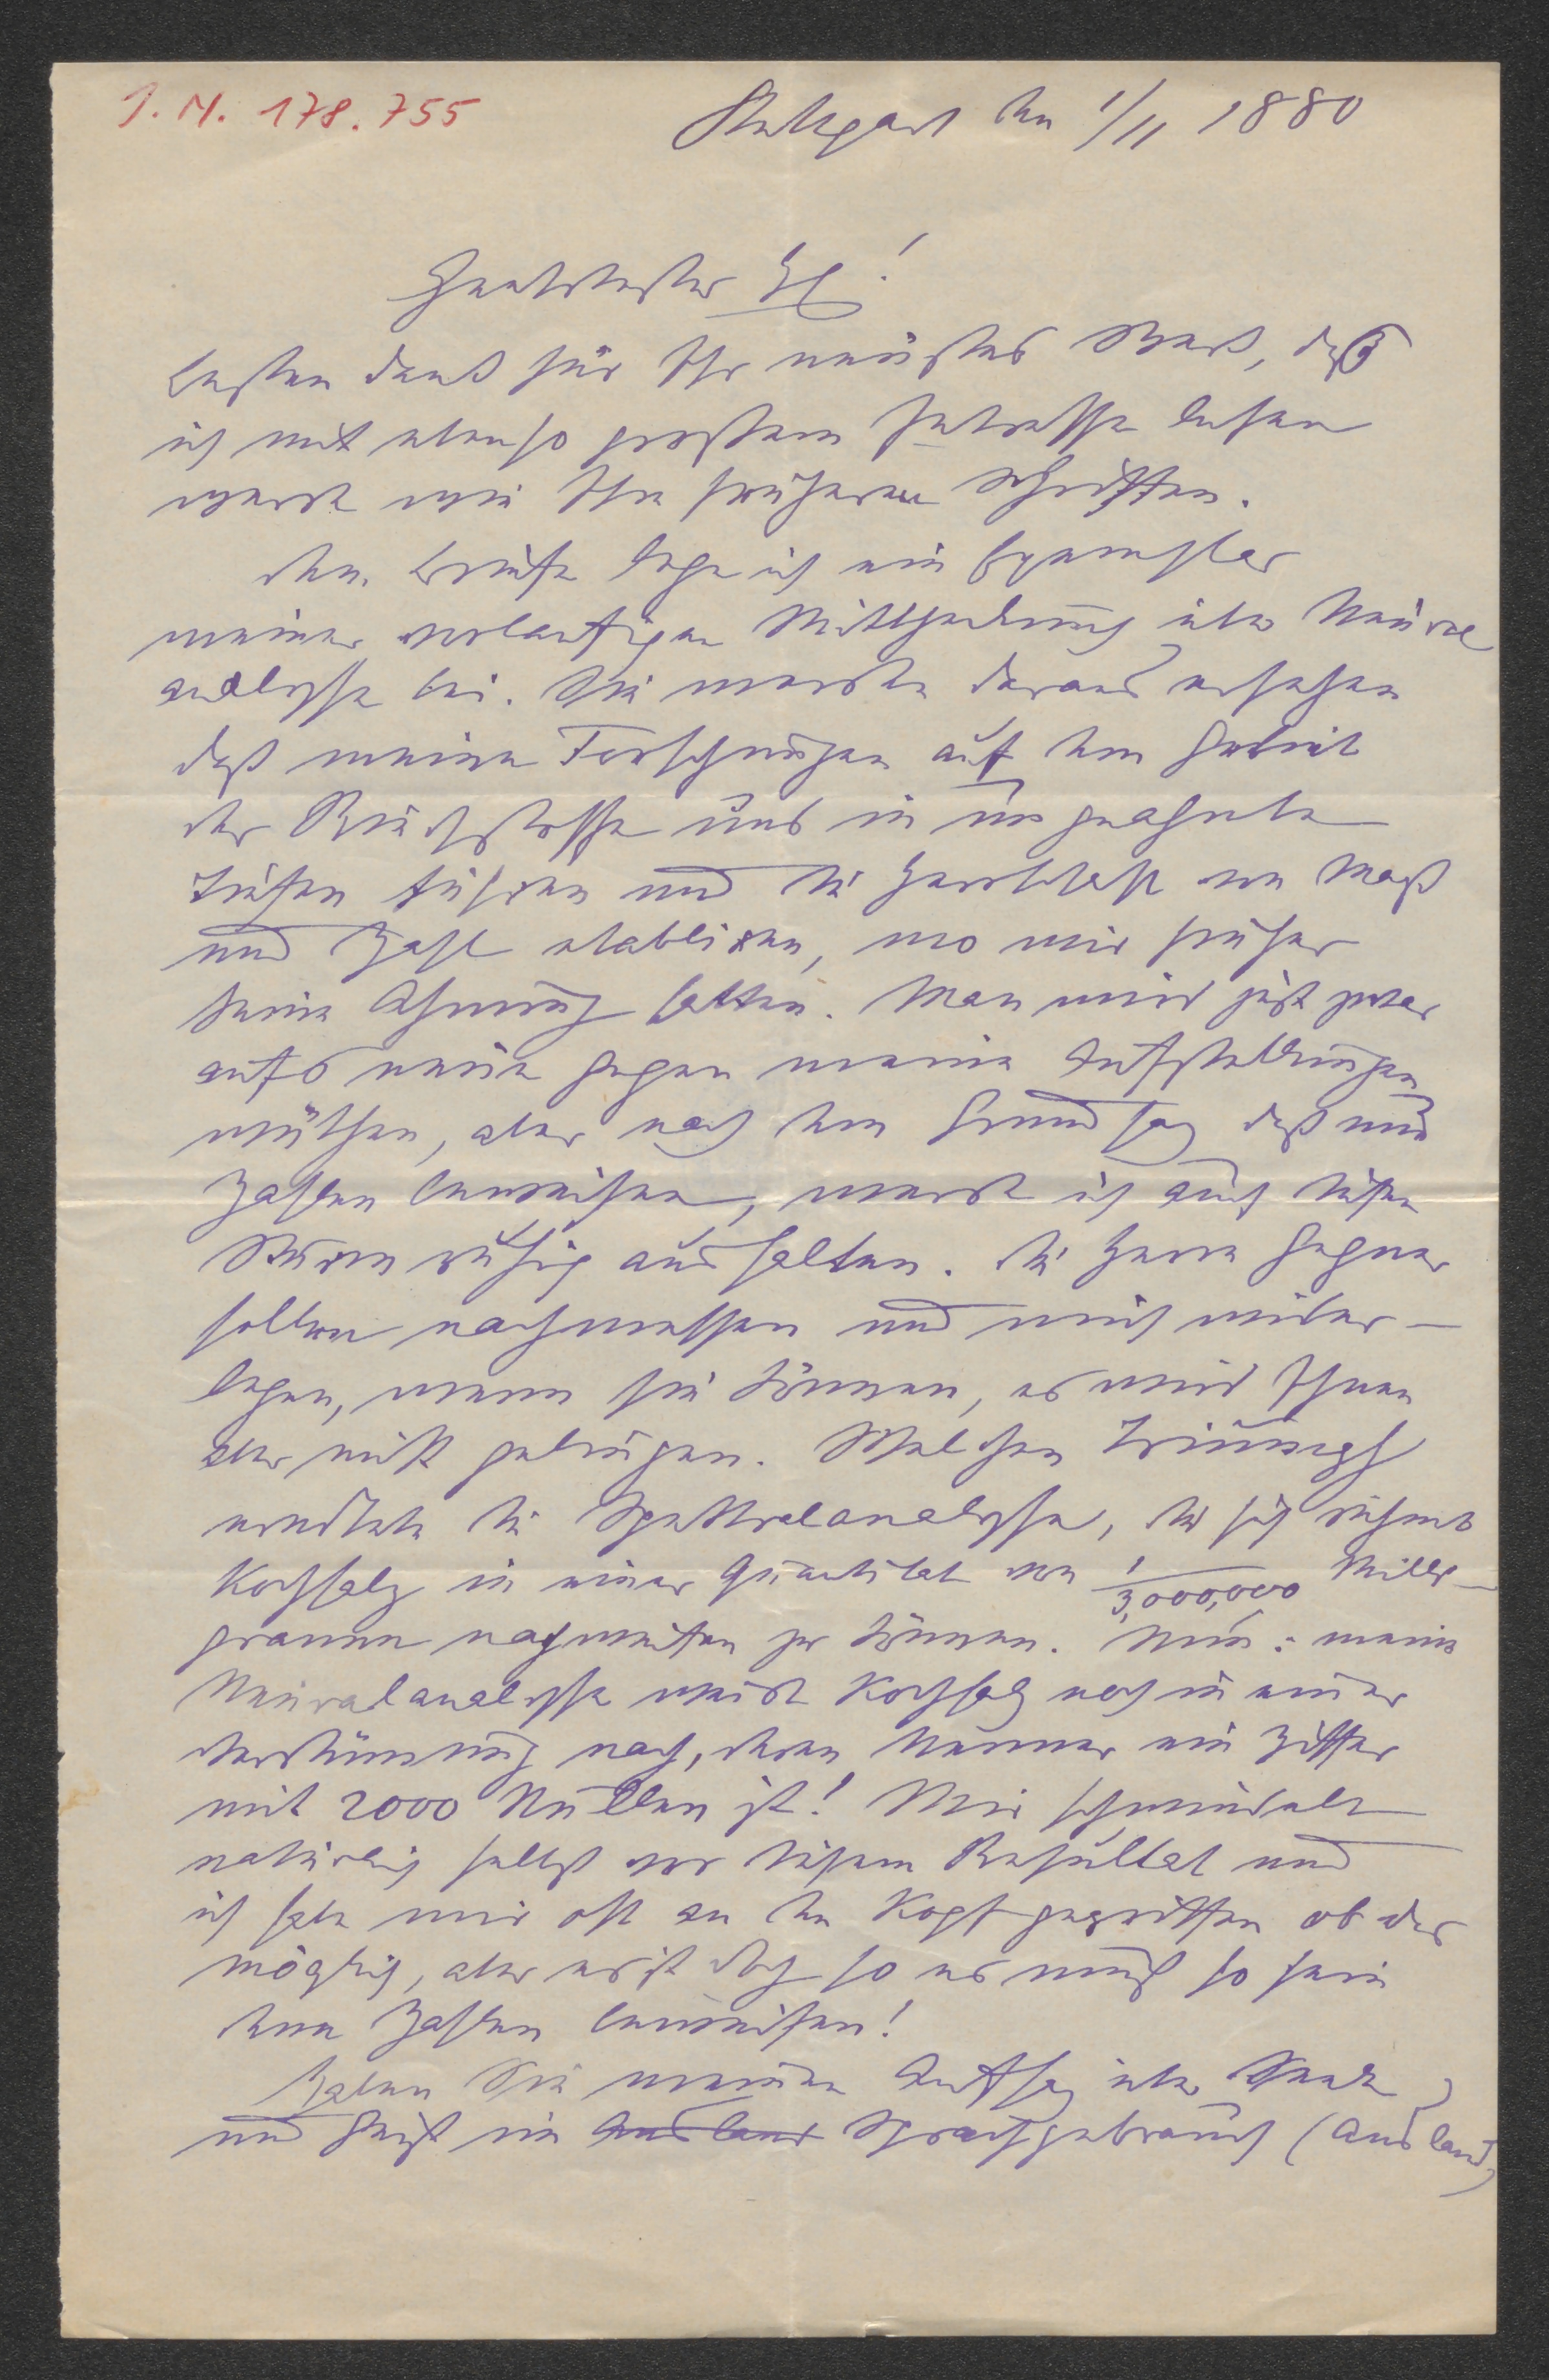 J. N. 178.755
Stuttgart den 1/11 1880
Geehrtester Hr!
besten Dank für Ihr neustes Werk, das
ich mit ebenso großem Intresse lesen
werde wie Ihre früheren Schriften.
dem Briefe lege ich ein Exemplar
meiner vorlaufigen Mittheilung über Neural
analyse bei. Sie werden daraus ersehen
daß meine Forschungen auf dem Gebiet
der Riechstoffe uns in ungeahnte
Tiefen führen und die Herrschaft von Maß
und Zahl etabliren, wo wir früher
keine Ahnung hatten. Man wird jetzt zwar
aufs neue gegen meine Aufstellungen
wüthen, aber nach dem Grundsatz daß nur
Zahlen beweisen, werde ich auch diesen
Sturm ruhig aushalten. die Herrn Gegner
sollen nachmessen und mich wider-
legen, wenn sie können, es wird Ihnen
aber nicht gelingen. Welchen Triumph
erndtete die Spektralanalyse, die sich rühmt
Kochsalz in einer Quantitat von 1/3,000,000 Milli-
gramm nachweisen zu können. Nun: meine
Neuralanalyse weist Kochsalz noch in einer
Verdünnung nach, deren Nenner ein Ziffer
mit 2000 Nullen ist! Mir schwindelt
natürlich selbst vor diesem Resultat und
ich habe mir oft an den Kopf gegriffen ob das
möglich, aber es ist doch so es muß so sein
denn Zahlen beweisen!
Haben Sie meinen Aufsatz über Seele
und Geist im Ausland Sprachgebrauch (Ausland,